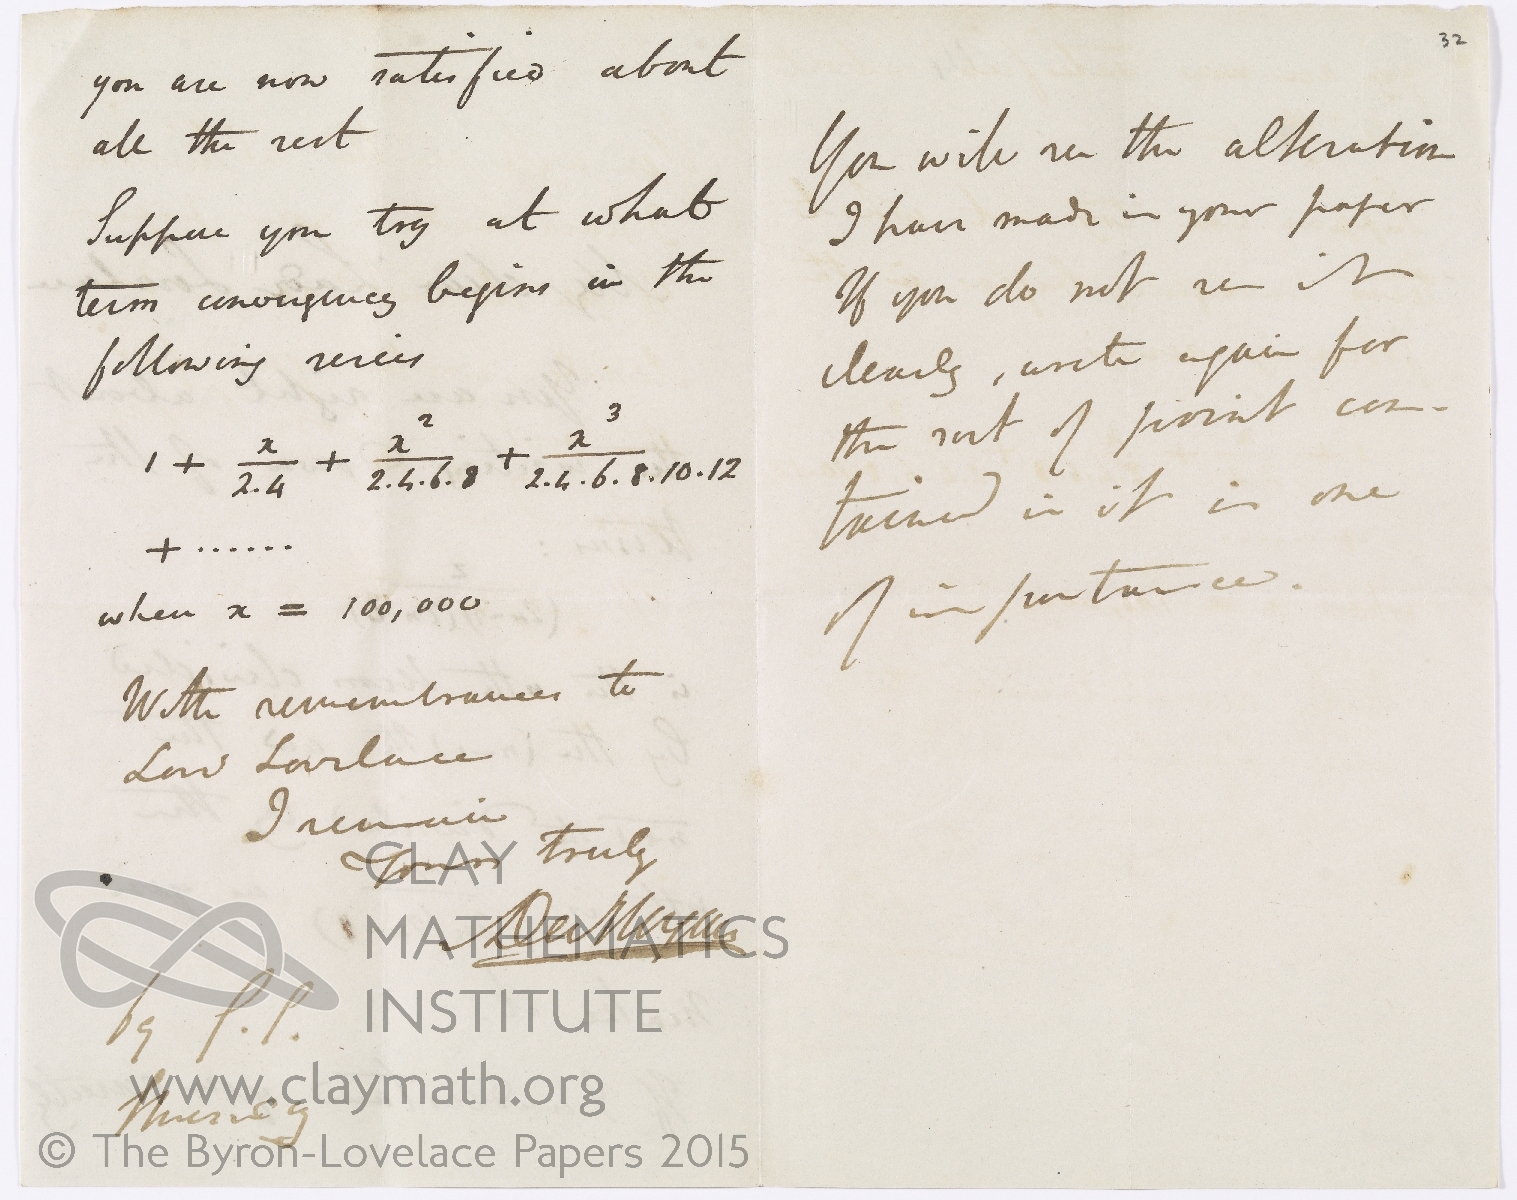 you are now satisfied about
all the rest
Suppose you try at what
term convergency begins in the
following series
1 + x/2.4 + x²/2.4.6.8 + x³/2.4.6.8.10.12
+ ......
when x = 100,000
With remembrances to
Lord Lovelace
I remain
Yours truly
ADeMorgan
69 G.S.
Thursdy
32
You will see the alteration
I have made in your paper
If you do not see it
clearly, write again for
the sort of point con-
tained in it is one
of importance.
CLAY
MATHEMATICS
INSTITUTE
www.claymath.org
© The Byron-Lovelace Papers 2015